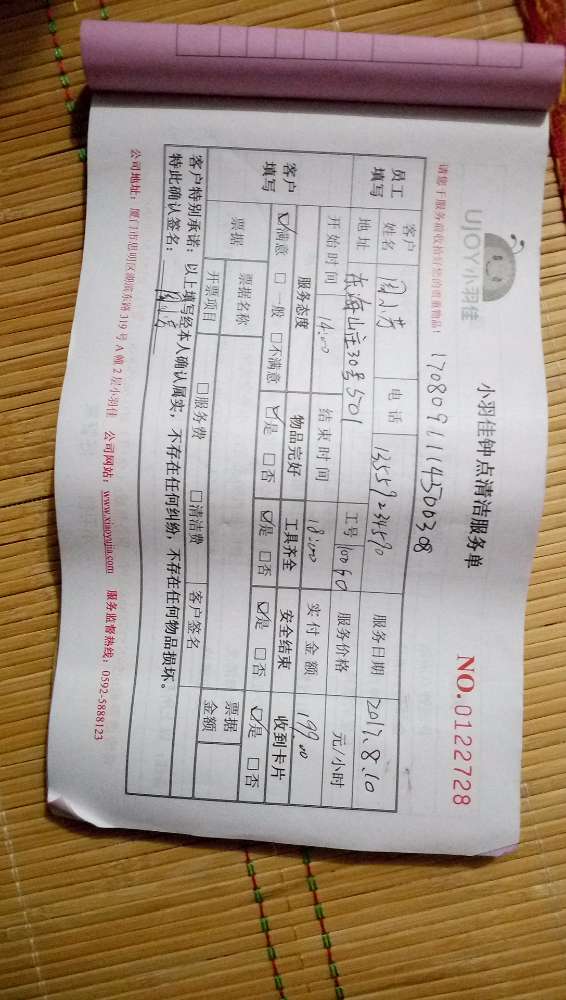 UJOY小羽佳
小羽佳钟点清洁服务单
NO.0122728
请您于服务前收拾好您的贵重物品!
1708091114500308
员工填写 客户姓名 周小芳 电话 13559234590 服务日期 2017.8.10
地址 东海山庄30号501 工号 10060 服务价格 元/小时
开始时间 14:00 结束时间 18:00 实付金额 199.00
客户填写 服务态度 物品完好 工具齐全 安全结束 收到卡片
☑满意 □一般 □不满意 ☑是 □否 ☑是 □否 ☑是 □否 ☑是 □否
票据 票据名称 票据金额
开票项目 □服务费 □清洁费 客户签名
客户特别承诺:以上填写经本人确认属实,不存在任何纠纷,不存在任何物品损坏。
特此确认签名:周小芳
公司地址:厦门市思明区湖滨东路319号A幢2层小羽佳 公司网站:www.xiaoyujia.com 服务监督热线:0592-5888123